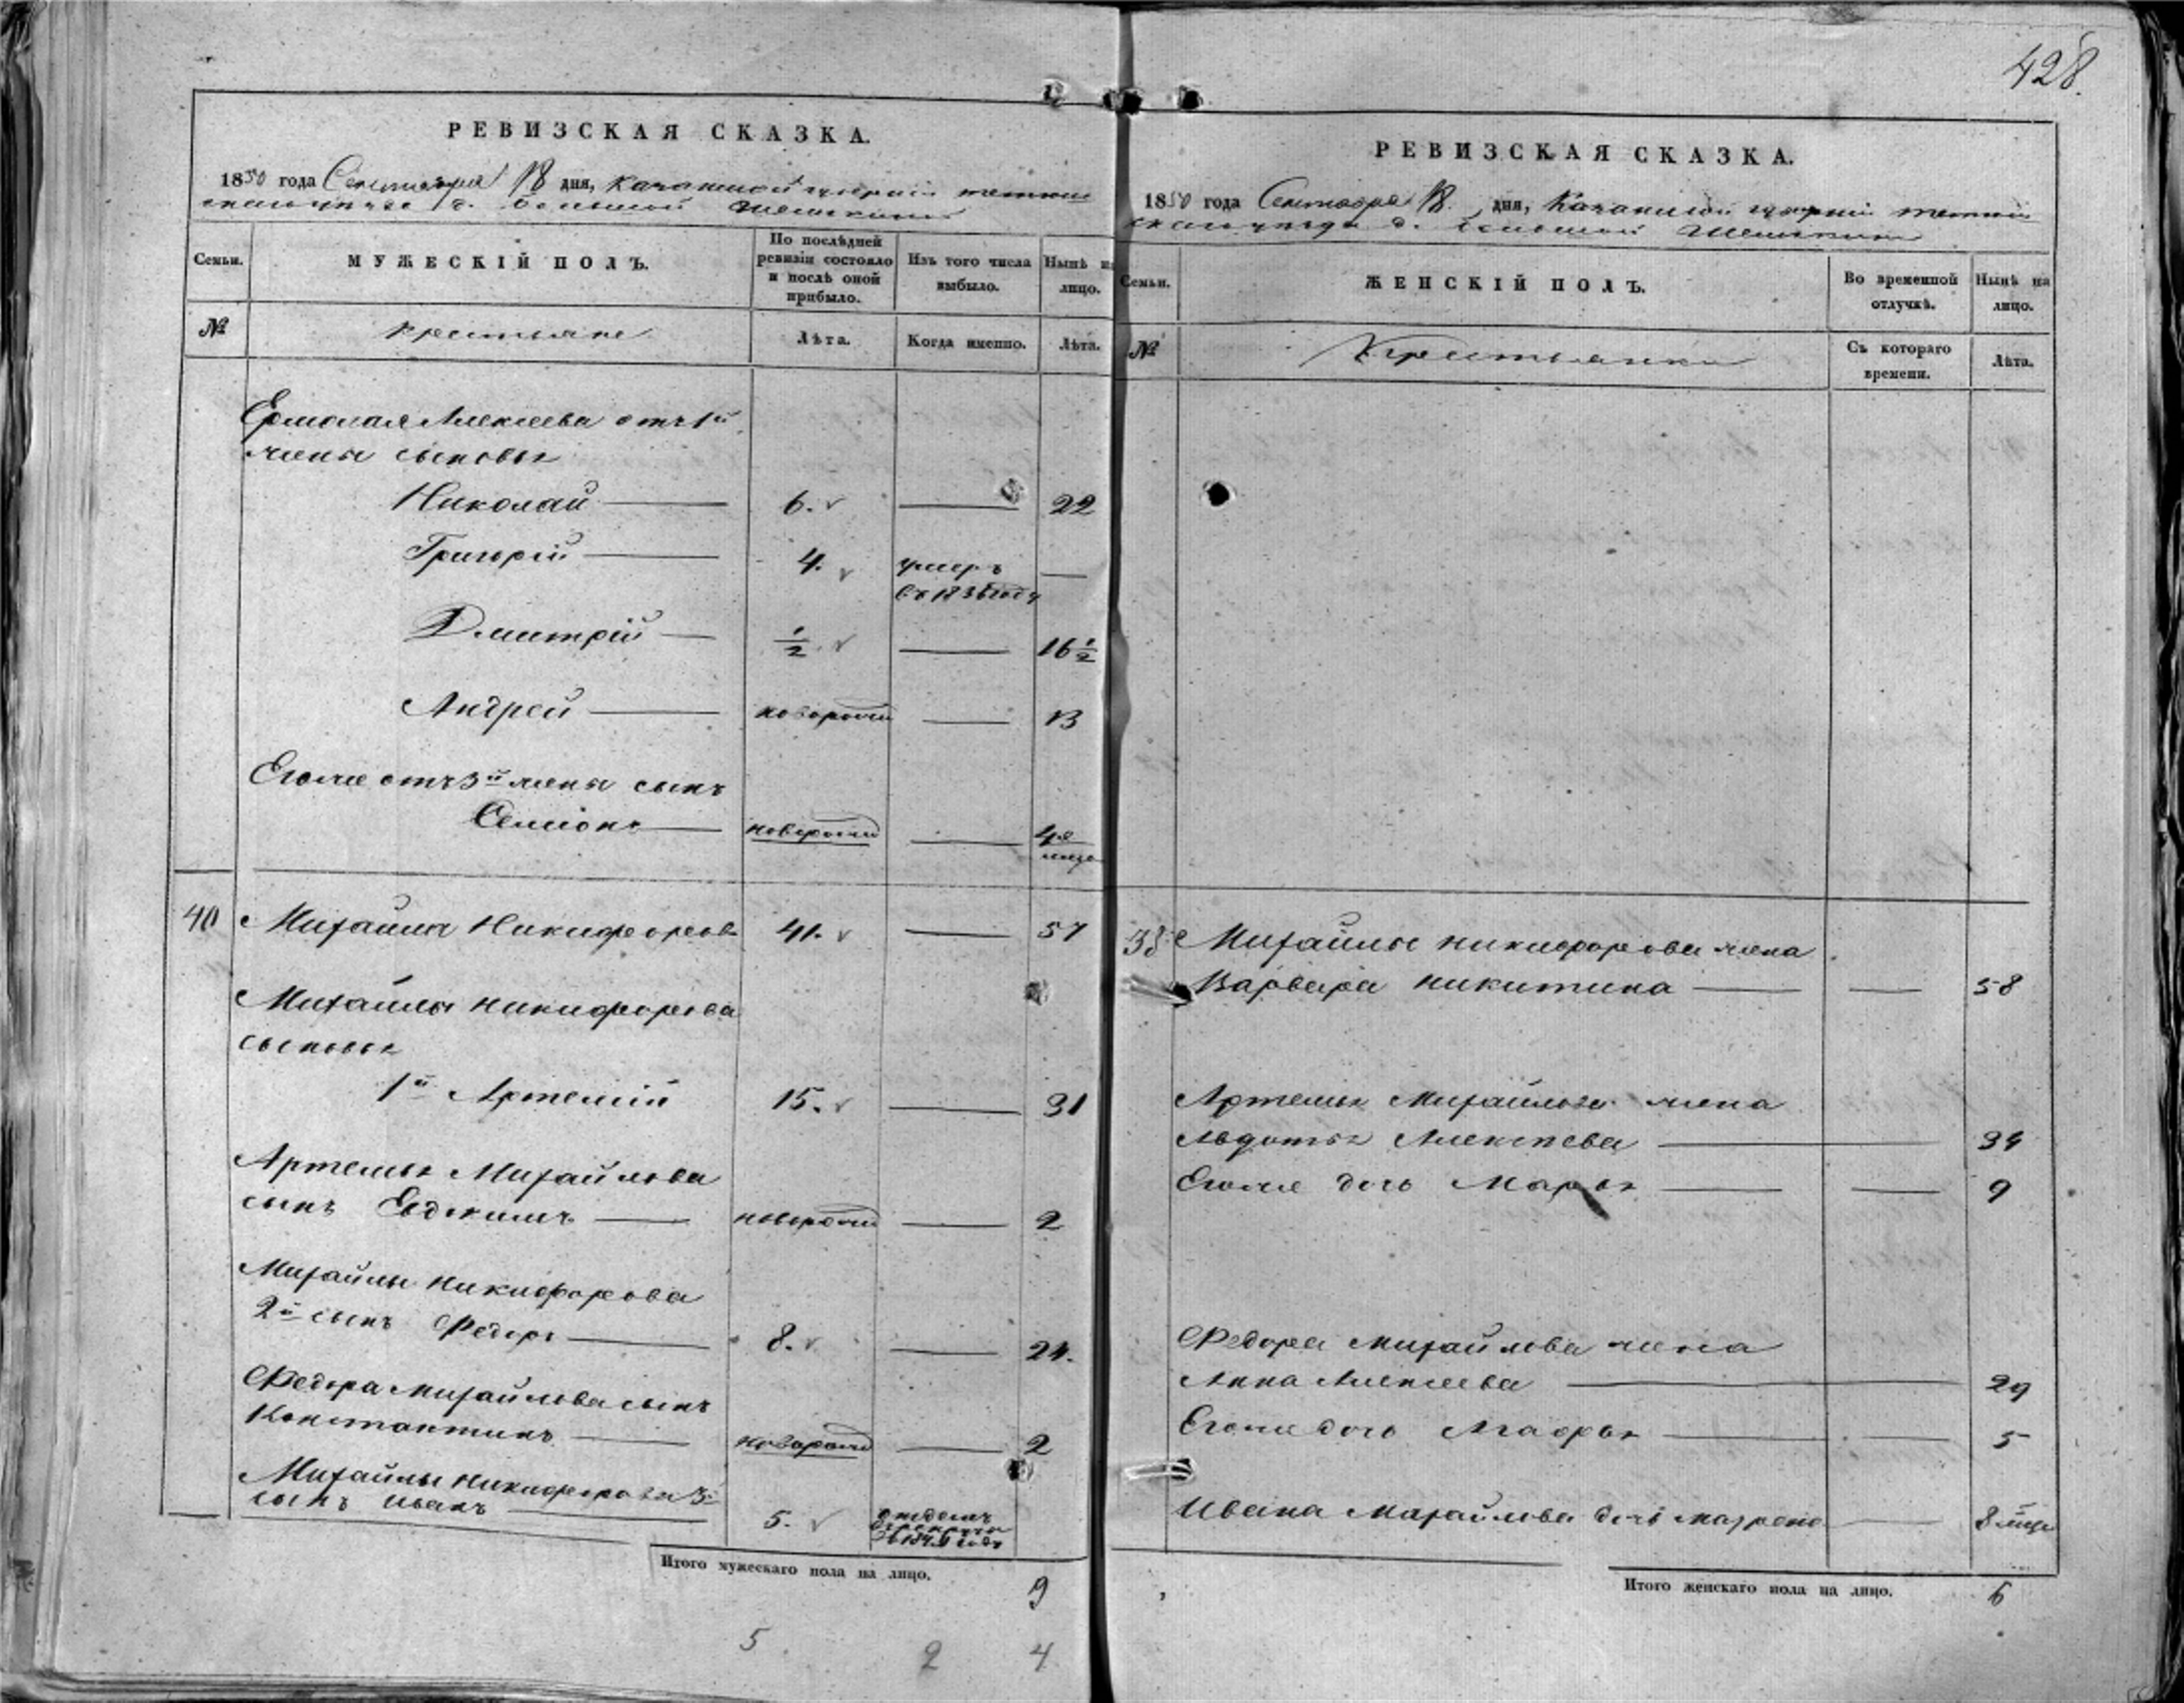 428.
РЕВИЗСКАЯ СКАЗКА.
1850 года Сентября 18 дня, Казанской губернии
Большой
Семьи.
МУЖЕСКІЙ ПОЛЪ.
По послѣдней ревизіи состояло и послѣ оной прибыло.
Изъ того числа выбыло.
Нынѣ на лицо.
№
крестьяне
Лѣта.
Когда именно.
Лѣта.
Ермолая Алексеева отъ 1й
жены сыновья
Николай 6. 22
Григорій 4. умеръ
въ году
Дмитрій ½ 16½
Андрей новорожд 13
Его же отъ 3й жены сынъ
Семіонъ новорожд
40 Михайла Никифоровъ 41. 57
Михайлы Никифорова
сыновья
1й Артемій 15. 31
Артемья Михайлова
сынъ Евдокимъ новорожд 2
Михайлы Никифорова
2й сынъ Федоръ 8. 24.
Федора Михайлова сынъ
Константинъ новорожд 2
Михайлы Никифорова 3й
сынъ Иванъ 5.
Итого мужескаго пола на лицо. 9
5 2 4
РЕВИЗСКАЯ СКАЗКА.
1850 года Сентября 18 дня, Казанской губерніи
д. Большой
Семьи.
ЖЕНСКІЙ ПОЛЪ.
Во временной отлучкѣ.
Нынѣ на лицо.
№
Крестьянки
Съ котораго времени.
Лѣта.
Михайлы Никифорова жена
Варвара Никитина 58
Артемья Михайлова жена
Авдотья Алексѣева 34
Его же дочь Марья 9
Федора Михайлова жена
Анна Алексеева 29
Его же дочь Агафья 5
Ивана Михайлова дочь Матрена 8 меся
Итого женскаго пола на лицо. 6